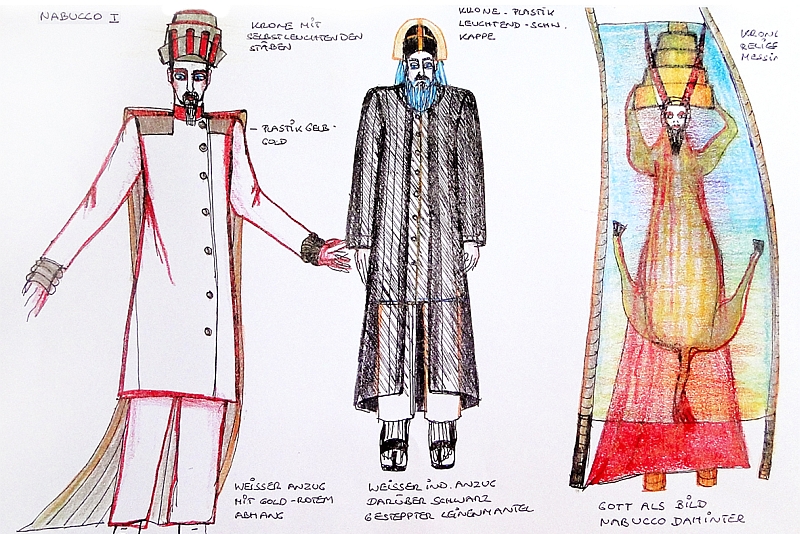 NABUCCO I
KRONE MIT
SELBSTLEUCHTENDEN
STÄBEN
KRONE - PLASTIK
LEUCHTEND - SCHW.
KAPPE
KRONE
RELIEF
MESSIN
- PLASTIK GELB -
GOLD
WEISSER ANZUG
MIT GOLD-ROTEM
ABHANG
WEISSER IND. ANZUG
DARÜBER SCHWARZ
GESTEPPTER LEINENMANTEL
GOTT ALS BILD
NABUCCO DAHINTER